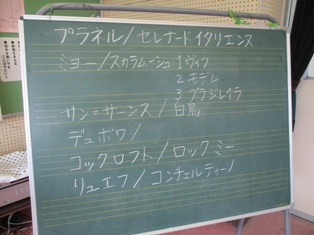 プラネル/セレナードイタリエンヌ
ミヨー/スカラムーシュ 1 ヴィフ
2 モデレ
3 ブラジレイラ
サン=サーンス/白鳥
デュボワ/
コックロフト/ロックミー
リュエフ/コンチェルティーノ